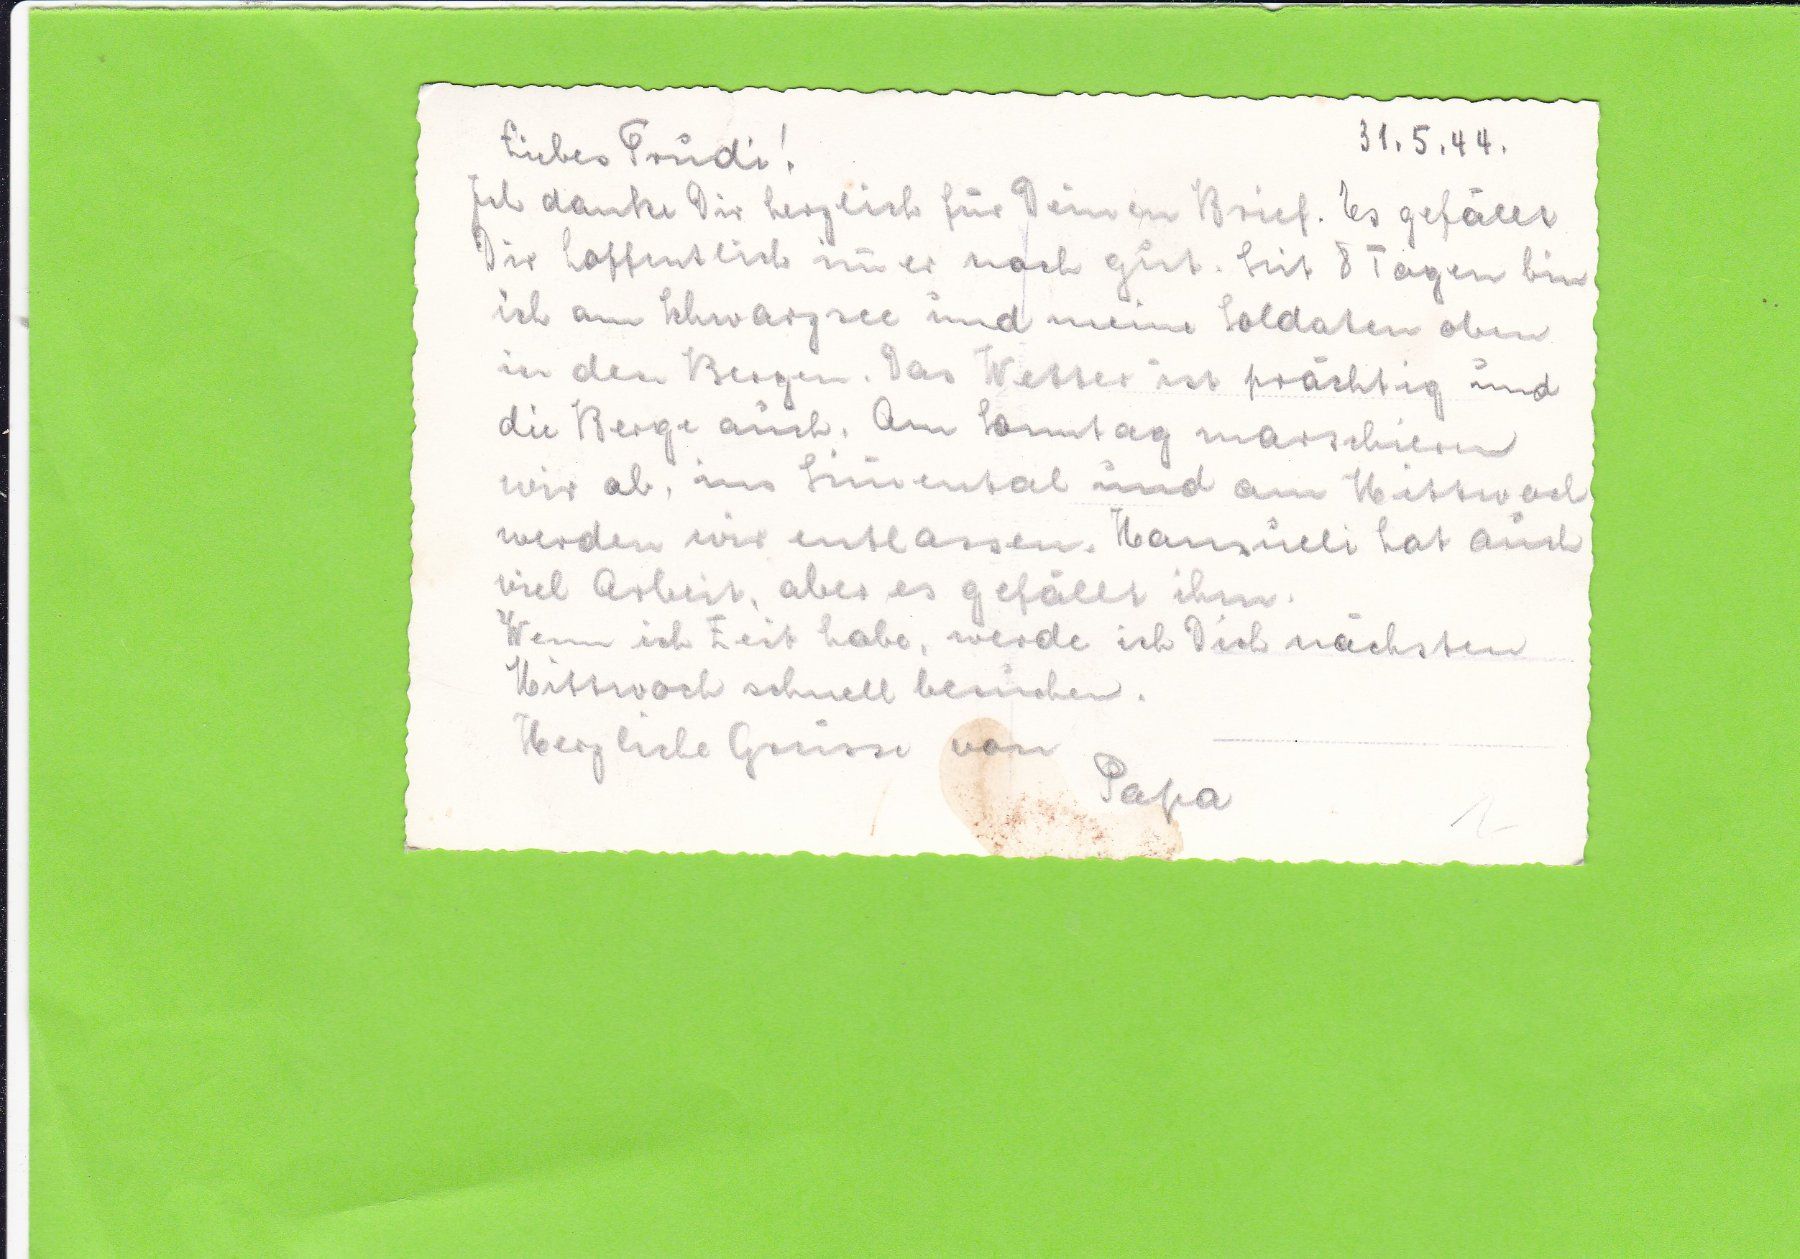 31.5.44.
Liebes Trudi!
Ich danke Dir herzlich für Deinen Brief. Es gefällt
Dir hoffentlich im̅er noch gut. Seit 8 Tagen bin
ich am Schwarzsee und meine Soldaten oben
in den Bergen. Das Wetter ist prächtig und
die Berge auch. Am Sonntag marschieren
wir ab, ins Sim̅ental und am Mittwoch
werden wir entlassen. Hansueli hat auch
viel Arbeit, aber es gefällt ihm.
Wenn ich Zeit habe, werde ich Dich nächsten
Mittwoch schnell besuchen.
Herzliche Grüsse von
Papa